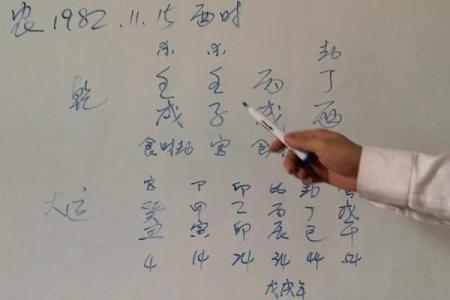 农1982.11.15 酉时
杀 杀 劫
壬 壬 丙 丁
乾
戌 子 戌 酉
食财劫 官 食
大运
官 卩 比 劫
癸 甲 乙 丙 丁 戊
丑 寅 卯 辰 巳 午
4 14 24 34 44 54
戊戌年